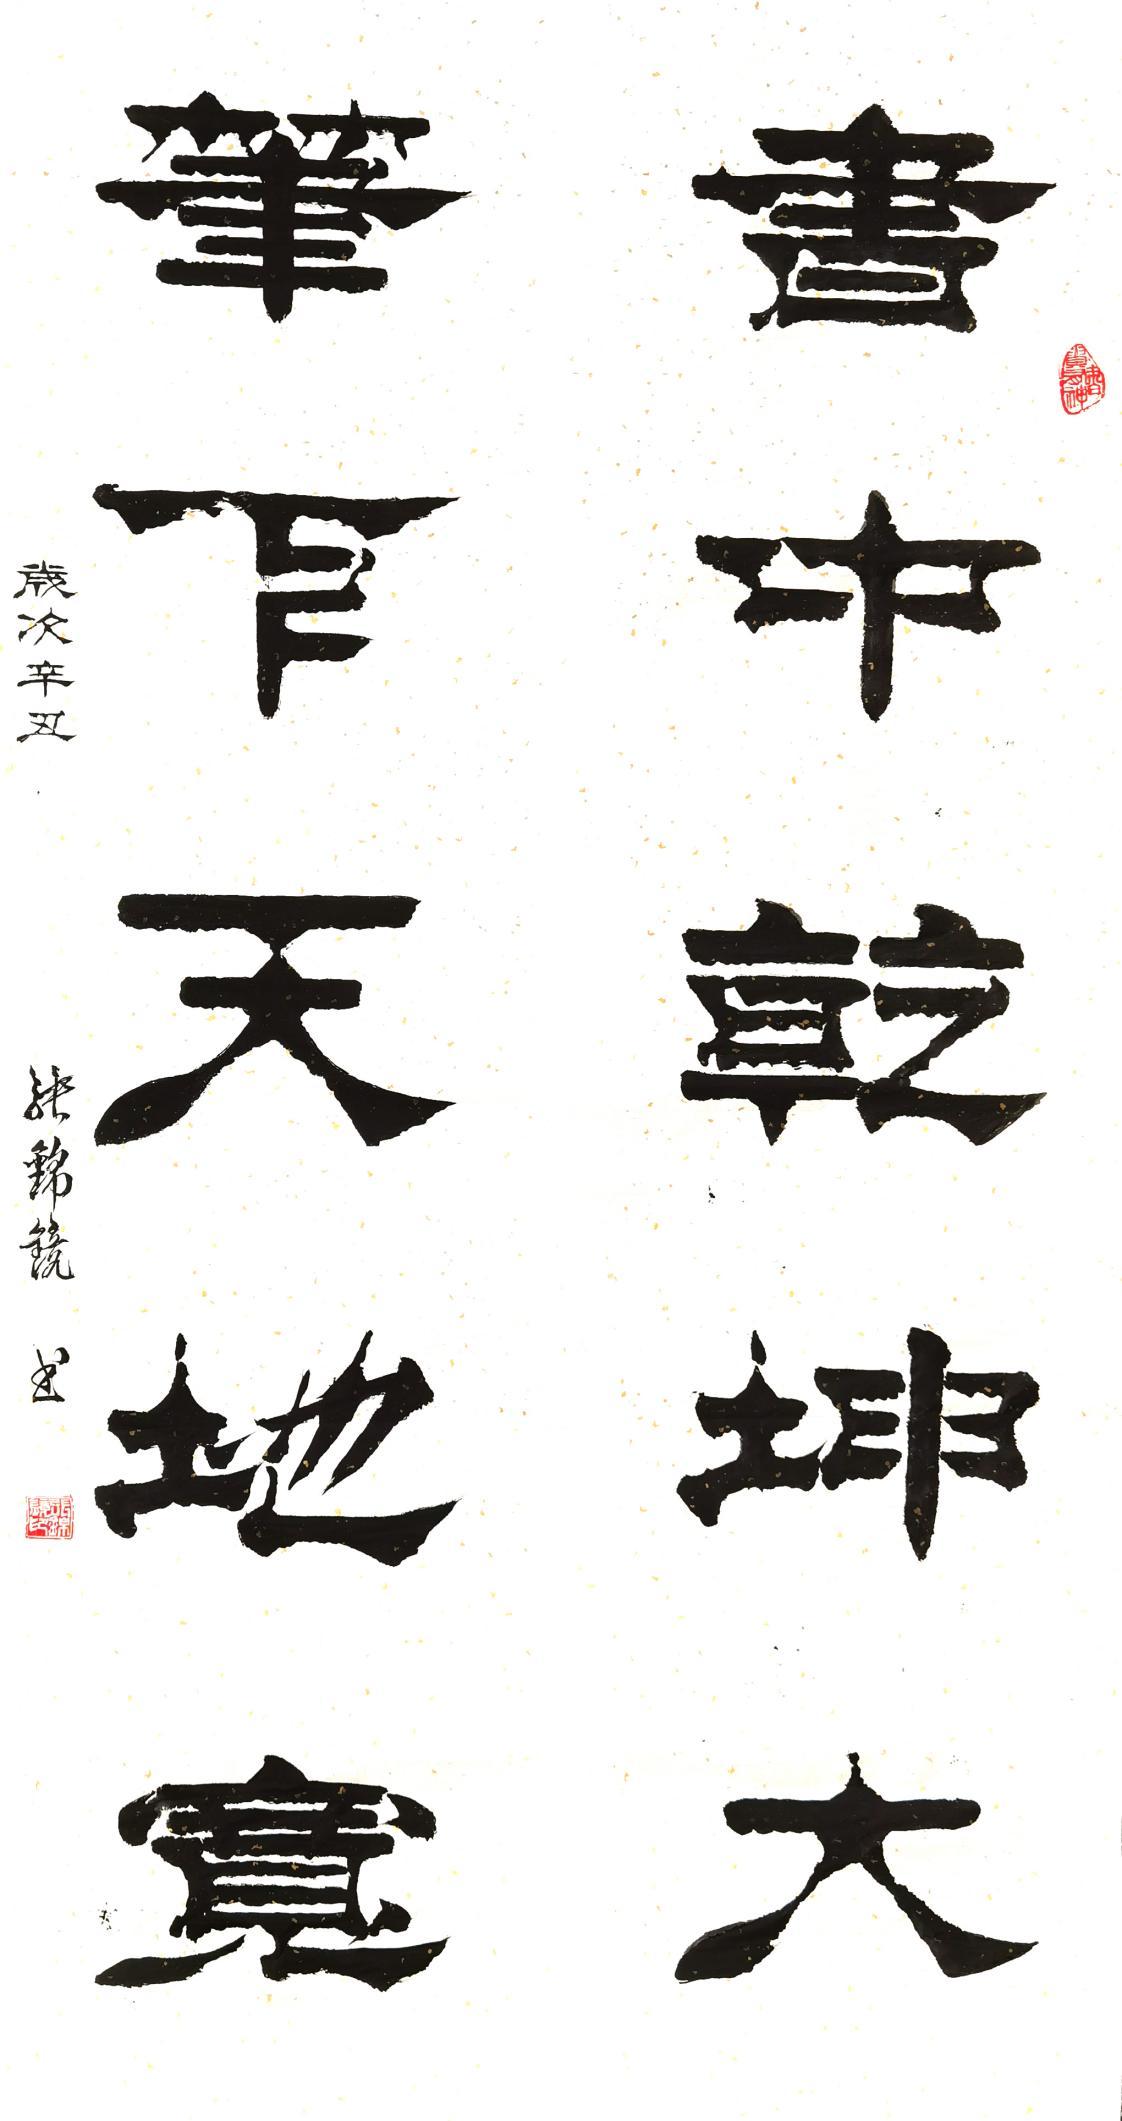 書中乾坤大
筆下天地寬
歲次辛丑
張錦鏡 书